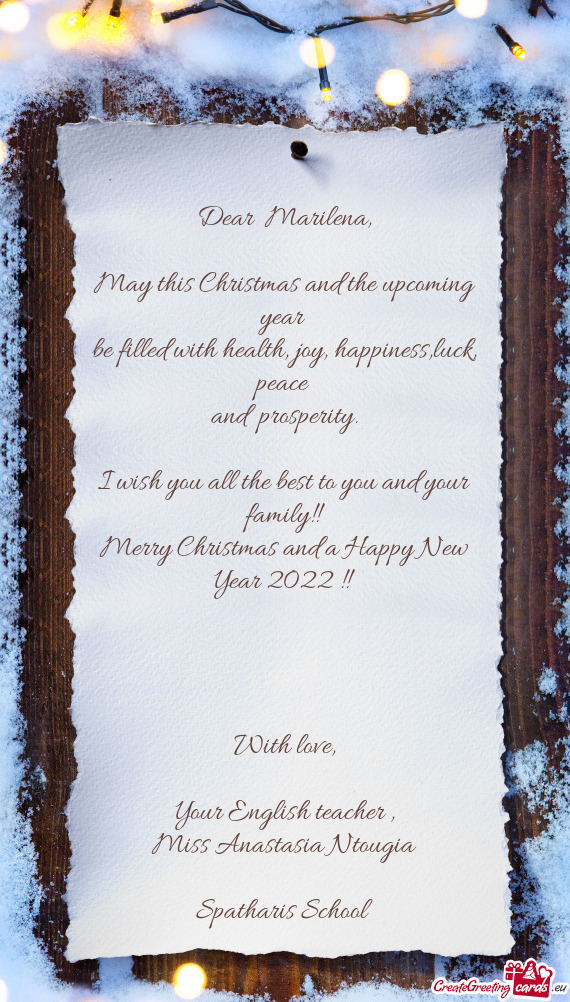 Dear Marilena,
May this Christmas and the upcoming
year
be filled with health, joy, happiness,luck,
peace
and prosperity.
I wish you all the best to you and your
family!!
Merry Christmas and a Happy New
Year 2022 !!
With love,
Your English teacher ,
Miss Anastasia Ntougia
Spatharis School
CreateGreetingcards.eu